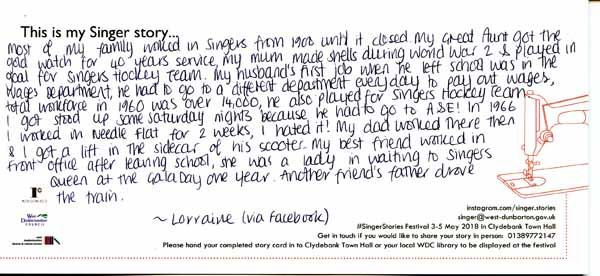 This is my Singer story...
Most of my family worked in Singers from 1908 until it closed. My Great Aunt got the
gold watch for 40 years service, my mum made shells during World War 2 & played in
goal for Singers Hockey Team. My husband's first job when he left school was in the
Wages Department, he had to go to a different department everyday to pay out wages,
total workforce in 1960 was over 14,000, he also played for Singers Hockey Team
I got stood up some Saturday nights because he had to go to A&E! In 1966
I worked in Needle Flat for 2 weeks, I hated it! My dad worked there then
& I got a lift in the sidecar of his scooter. My best friend worked in
front office after leaving school, she was a lady in waiting to Singers
Queen at the Gala Day one year. Another friend's father drove
the train.
~ Lorraine (via Facebook)
West
Dunbartonshire
COUNCIL
instagram.com/singer.stories
singer@west-dunbarton.gov.uk
#SingerStories Festival 3-5 May 2018 in Clydebank Town Hall
Get in touch if you would like to share your story in person: 01389772147
Please hand your completed story card in to Clydebank Town Hall or your local WDC library to be displayed at the festival